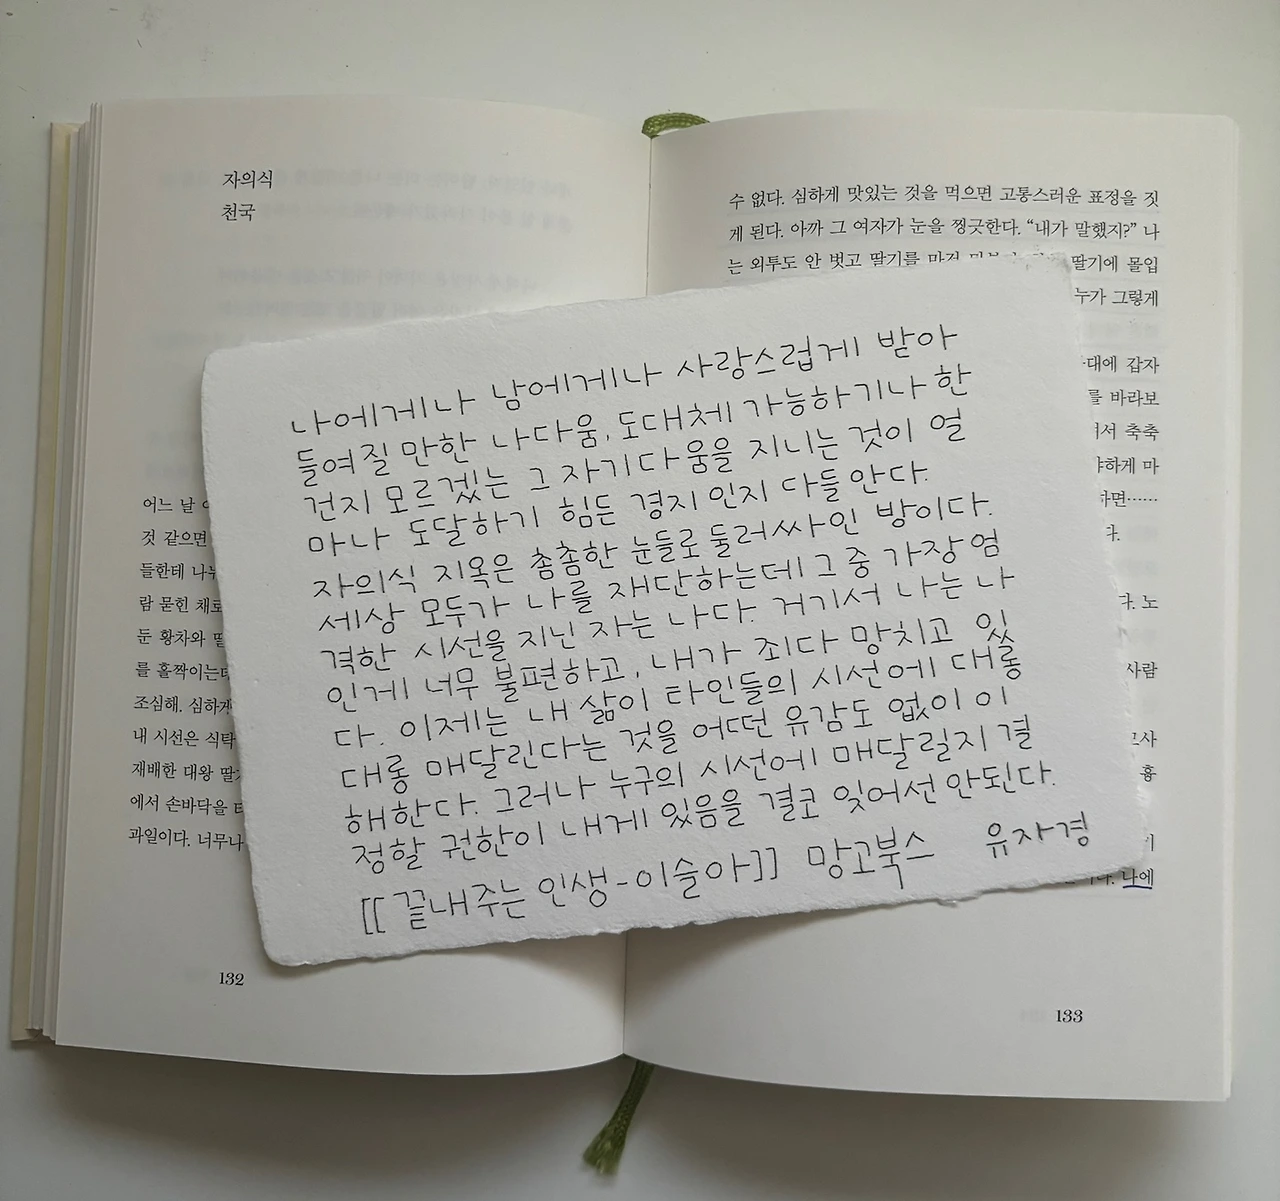 자의식
천국
어느 날
것 같으면
들한테 나누
람 묻힌 채로
둔 황차와
를 홀짝이는
조심해. 심하게
내 시선은 식탁
재배한 대왕
에서 손바닥을
과일이다. 너무나
132
수 없다. 심하게 맛있는 것을 먹으면 고통스러운 표정을 짓
게 된다. 아까 그 여자가 눈을 찡긋한다. “내가 말했지?” 나
는 외투도 안 벗고 딸기를 마저 딸기에 몰입
누가 그렇게
대에 갑자
를 바라보
서 축축
하게 마
하면……
다.
다. 노
사람
흉
나에
133
나에게나 남에게나 사랑스럽게 받아
들여질 만한 나다움, 도대체 가능하기나 한
건지 모르겠는 그 자기다움을 지니는 것이 얼
마나 도달하기 힘든 경지인지 다들 안다.
자의식 지옥은 촘촘한 눈들로 둘러싸인 방이다.
세상 모두가 나를 재단하는데 그 중 가장 엄
격한 시선을 지닌 자는 나다. 거기서 나는 나
인게 너무 불편하고, 내가 죄다 망치고 있
다. 이제는 내 삶이 타인들의 시선에 대롱
대롱 매달린다는 것을 어떤 유감도 없이 이
해한다. 그러나 누구의 시선에 매달릴지 결
정할 권한이 내게 있음을 결코 잊어선 안된다.
[[끝내주는 인생-이슬아]] 망고북스 유자경